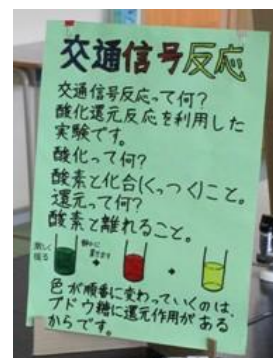 交通信号反応
交通信号反応って何?
酸化還元反応を利用した
実験です。
酸化って何?
酸素と化合(くっつく)こと。
還元って何?
酸素と離れること。
激しく
振る
静かに
色が順番に変わっていくのは、
ブドウ糖に還元作用がある
からです。